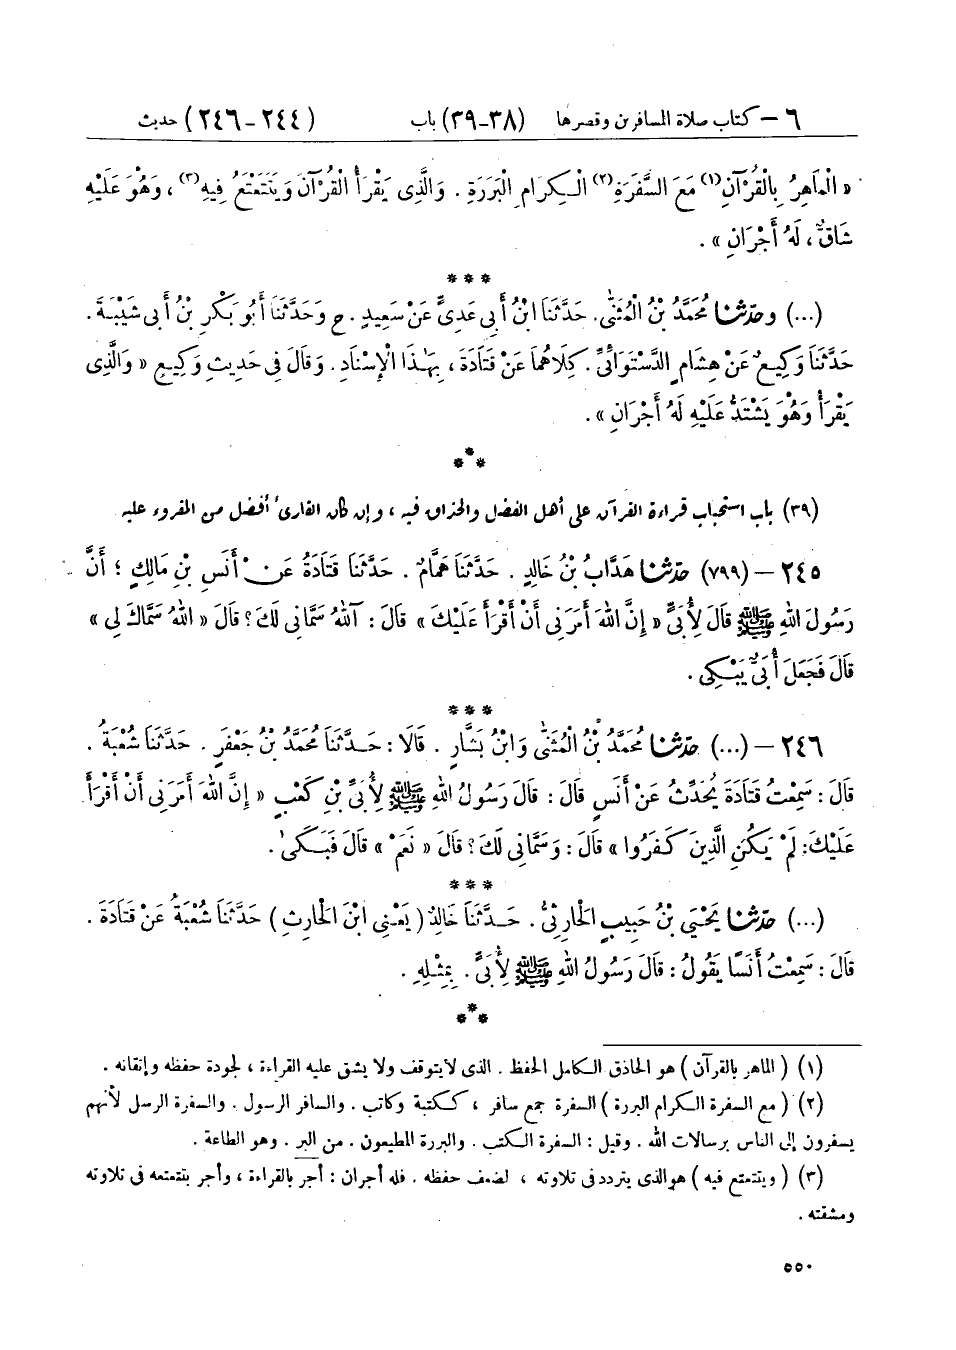 ٦ – كتاب صلاة المسافرين وقصرها (٣٨-٣٩) باب (٢٤٤-٢٤٦) حديث
« الْمَاهِرُ بِالْقُرْآنِ(١) مَعَ السَّفَرَةِ(٢) الْكِرَامِ الْبَرَرَةِ . وَالَّذِى يَقْرَأُ الْقُرْآنَ وَيَتَتَعْتَعُ فِيهِ(٣) ، وَهُوَ عَلَيْهِ
شَاقٌّ ، لَهُ أَجْرَانِ » .
* * *
(...) وحدّثنا مُحَمَّدُ بْنُ الْمُثَنَّى . حَدَّثَنَا ابْنُ أَبِي عَدِىٍّ عَنْ سَعِيدٍ . ح وَحَدَّثَنَا أَبُو بَكْرِ بْنُ أَبِي شَيْبَةَ .
حَدَّثَنَا وَكِيعٌ عَنْ هِشَامٍ الدَّسْتَوَائِىِّ . كِلَاهُمَا عَنْ قَتَادَةَ ، بِهَٰذَا الْإِسْنَادِ . وَقَالَ فِى حَدِيثِ وَكِيعٍ « وَالَّذِى
يَقْرَأُ وَهُوَ يَشْتَدُّ عَلَيْهِ لَهُ أَجْرَانِ » .
* * *
(٣٩) باب استحباب قراءة القرآن على أهل الفضل والحذاق فيه ، وإن كان القارئ أفضل من المقروء عليه
٢٤٥ – (٧٩٩) حدّثنا هَدَّابُ بْنُ خَالِدٍ . حَدَّثَنَا هَمَّامٌ . حَدَّثَنَا قَتَادَةُ عَنْ أَنَسِ بْنِ مَالِكٍ ؛ أَنَّ
رَسُولَ اللهِ ﷺ قَالَ لِأُبَىٍّ « إِنَّ اللهَ أَمَرَنِى أَنْ أَقْرَأَ عَلَيْكَ » قَالَ : آللهُ سَمَّانِى لَكَ ؟ قَالَ « اللهُ سَمَّاكَ لِى »
قَالَ فَجَعَلَ أُبَىٌّ يَبْكِى .
* * *
٢٤٦ – (...) حدّثنا مُحَمَّدُ بْنُ الْمُثَنَّى وَابْنُ بَشَّارٍ . قَالَا : حَدَّثَنَا مُحَمَّدُ بْنُ جَعْفَرٍ . حَدَّثَنَا شُعْبَةُ .
قَالَ : سَمِعْتُ قَتَادَةَ يُحَدِّثُ عَنْ أَنَسٍ قَالَ : قَالَ رَسُولُ اللهِ ﷺ لِأُبَىِّ بْنِ كَعْبٍ « إِنَّ اللهَ أَمَرَنِى أَنْ أَقْرَأَ
عَلَيْكَ : لَمْ يَكُنِ الَّذِينَ كَفَرُوا » قَالَ : وَسَمَّانِى لَكَ ؟ قَالَ « نَعَمْ » قَالَ فَبَكَىٰ .
* * *
(...) حدّثنا يَحْيَى بْنُ حَبِيبٍ الْحَارِثِىُّ . حَدَّثَنَا خَالِدٌ ( يَعْنِى ابْنَ الْحَارِثِ ) حَدَّثَنَا شُعْبَةُ عَنْ قَتَادَةَ .
قَالَ : سَمِعْتُ أَنَسًا يَقُولُ : قَالَ رَسُولُ اللهِ ﷺ لِأُبَىٍّ . بِمِثْلِهِ .
* * *
(١) ( الماهر بالقرآن ) هو الحاذق الكامل الحفظ . الذى لا يتوقف ولا يشق عليه القراءة ، لجودة حفظه وإتقانه .
(٢) ( مع السفرة الكرام البررة ) السفرة جمع سافر ، ككتبة وكاتب . والسافر الرسول . والسفرة الرسل لأنهم
يسفرون إلى الناس برسالات الله . وقيل : السفرة الكتب . والبررة المطيعون . من البر . وهو الطاعة .
(٣) ( ويتتعتع فيه ) هو الذى يتردد فى تلاوته ، لضعف حفظه . فله أجران : أجر بالقراءة ، وأجر بتتعتعه فى تلاوته
ومشقته .
٥٥٠